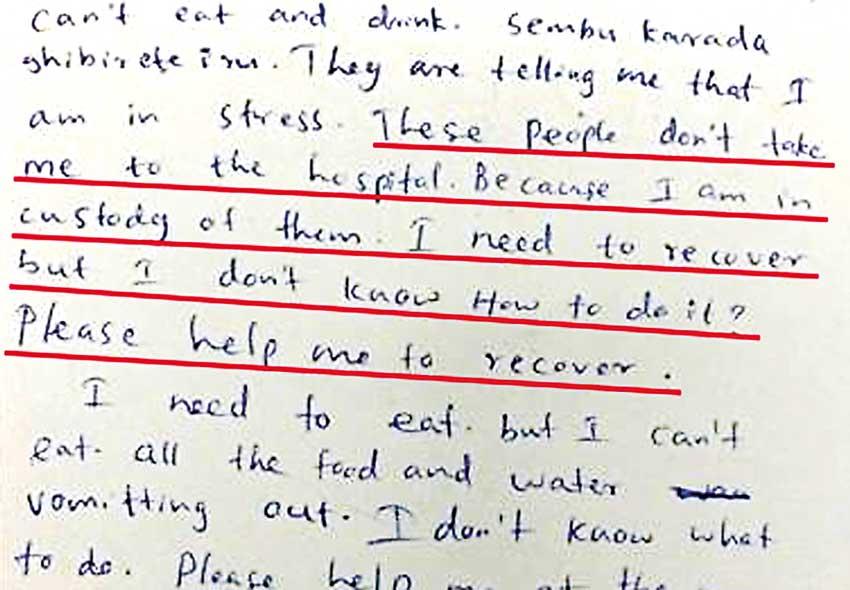 can't eat and drink. Sembu karada
ghibirete iru. They are telling me that I
am in stress. These people don't take
me to the hospital. Because I am in
custody of them. I need to recover
but I don't know How to do it?
Please help me to recover.
I need to eat. but I can't
eat. all the food and water
vomitting out. I don't know what
to do. Please help me at the